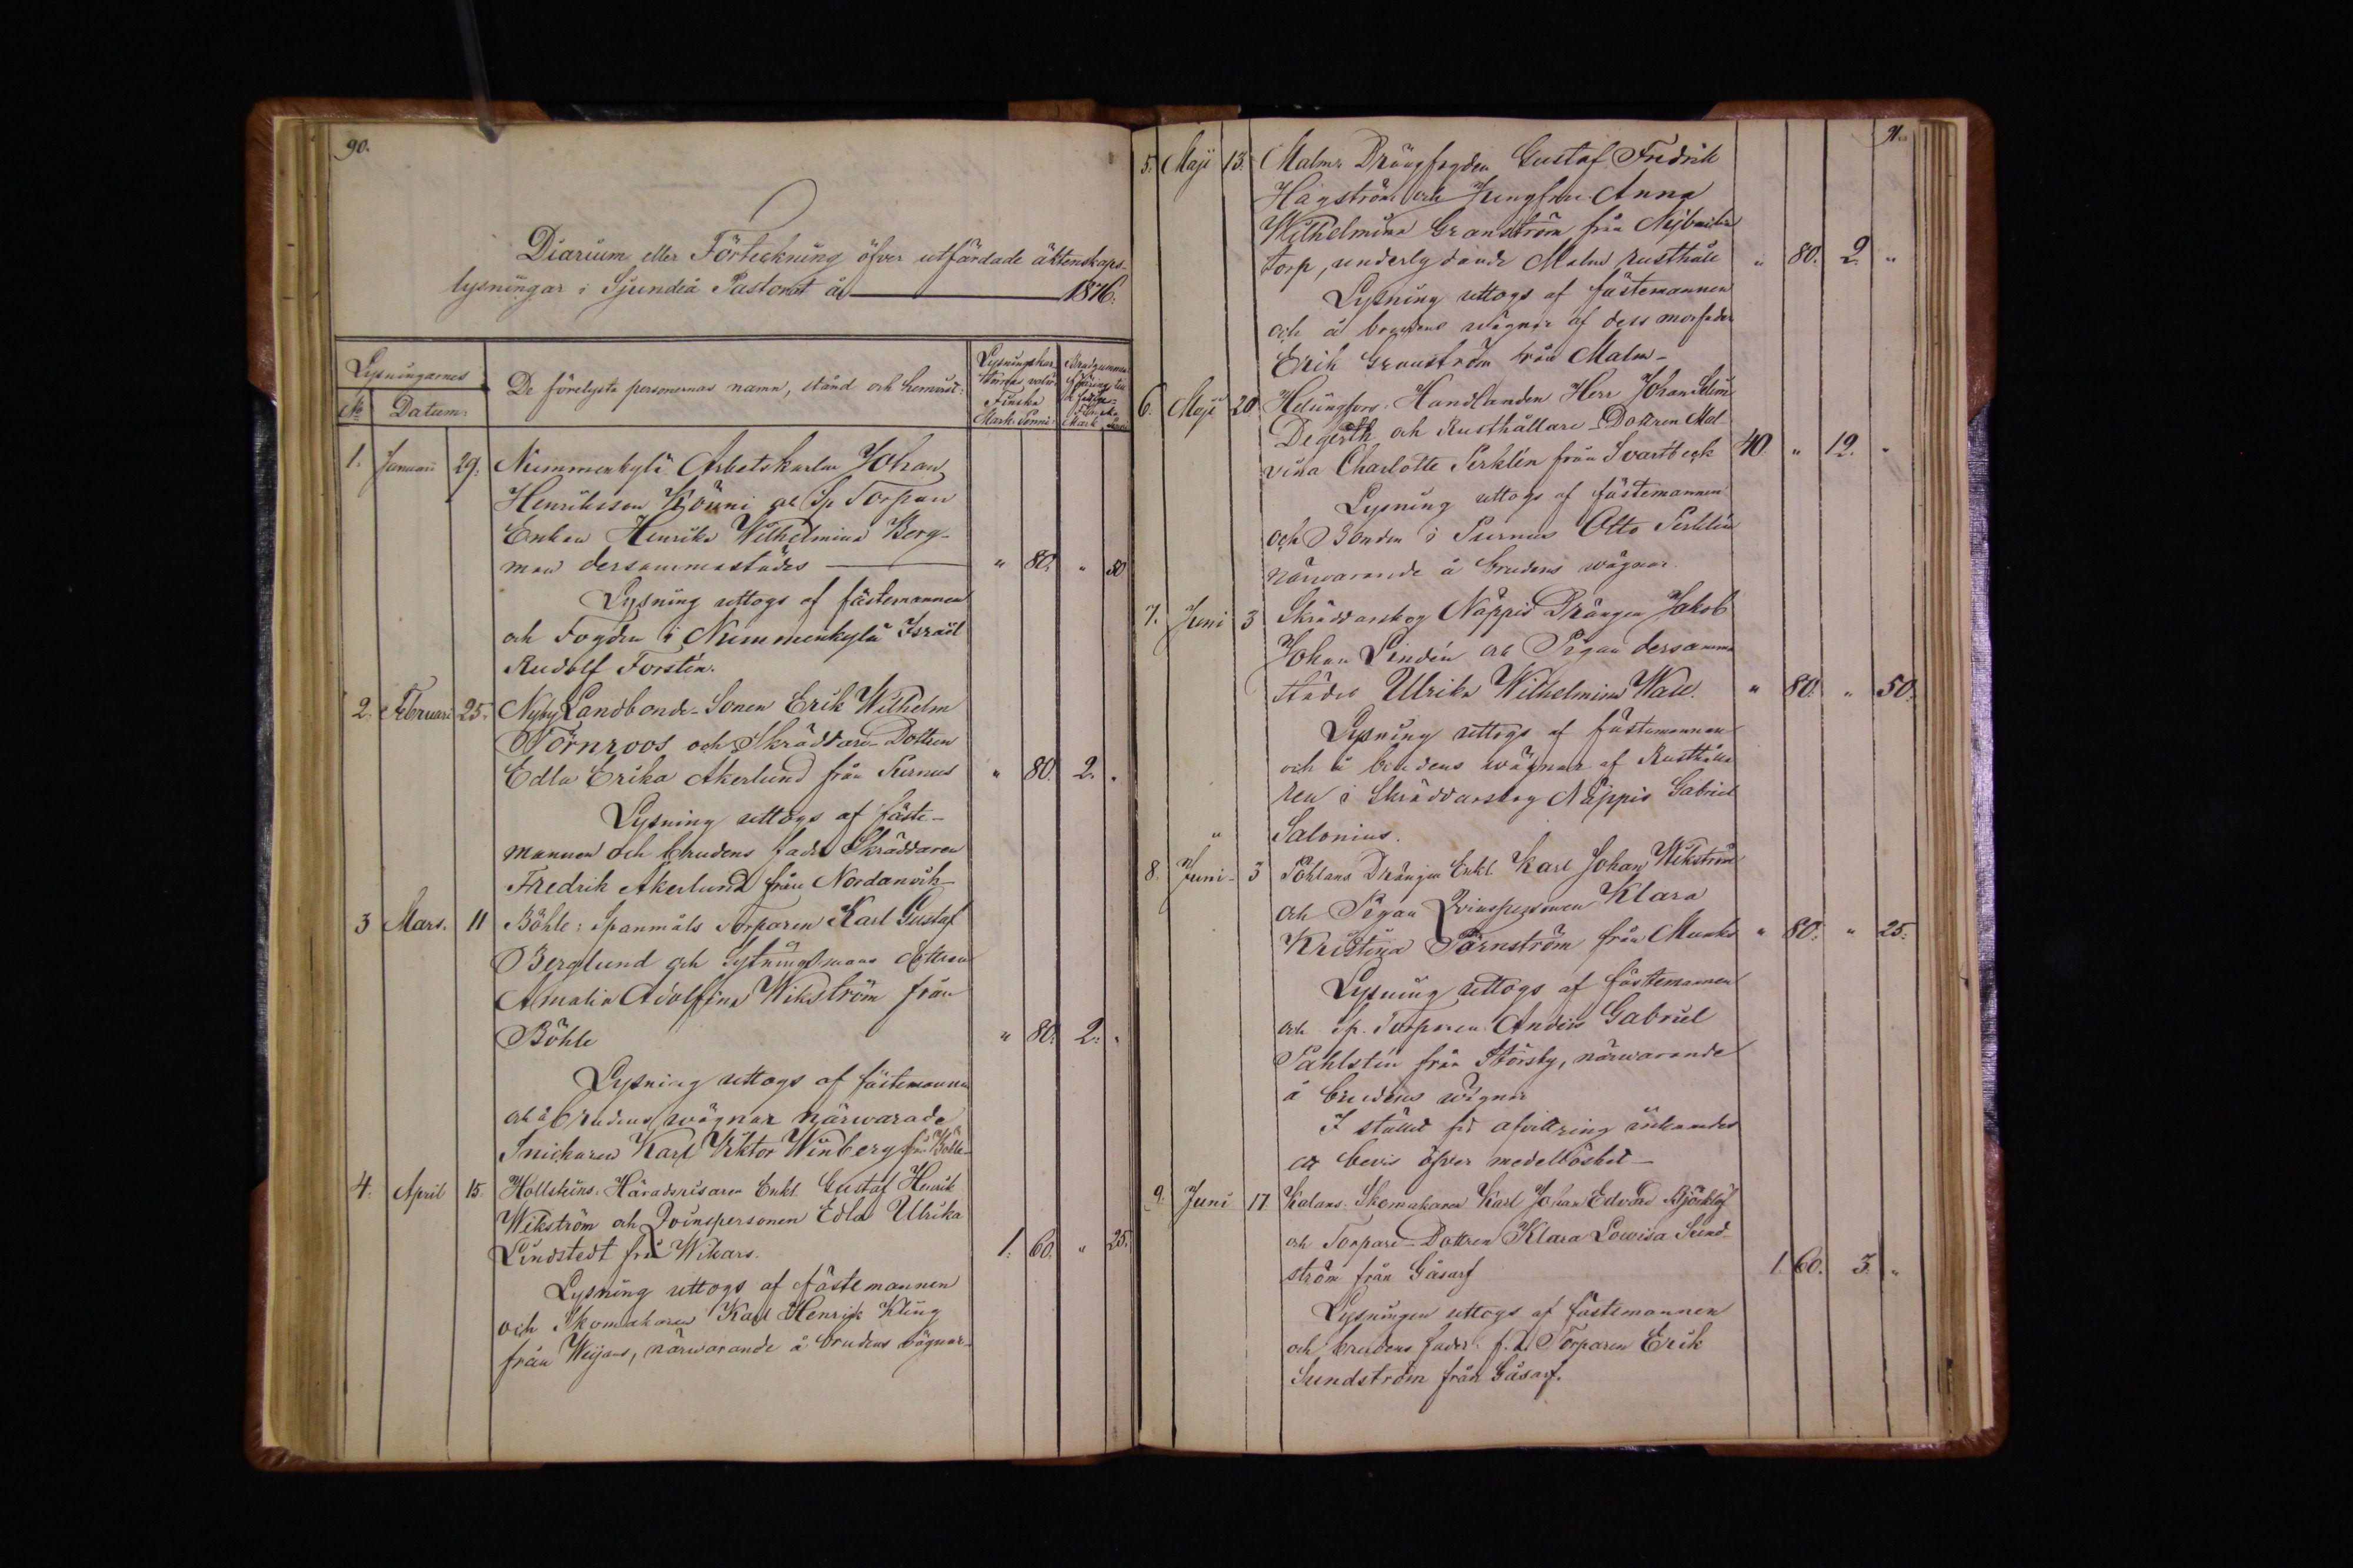 90.
Diarium eller Förteckning öfver utfärdade äktenskaps-
lysningar i Sjundeå Pastorat år 1876.
Lysningarnes
No Datum:
De förelysta personernas namn, stånd och hemvist:
Finska
Mark. Penni.
Mark
1. Januari 29. Nummenkylä Arbetskarlen Johan
Henriksson Köuni och Sp. Torpare
Enkan Henrika Wilhelmina Berg-
man dersammastädes " 80. " 50
Lysning uttogs af fästemannen
och Fogden i Nummenkylä Israel
Rudolf Forstén.
2. Februari 25. Nyby Landbonde-Sonen Erik Wilhelm
Törnroos och Skräddare-Dottren
Edla Erika Åkerlund från Purnus " 80. 2. "
Lysning uttogs af fäste-
mannen och brudens fader Skräddaren
Fredrik Åkerlund från Nordanvik-
3 Mars. 11 Böhle: Spanmåls Torparen Karl Gustaf
Berglund och Sytningsmans dottren
Amalia Adolfina Wikström från
Böhle " 80. 2. "
Lysning uttogs af fästemannen
och å brudens wägnar närwarade
Snickaren Karl Viktor Winberg från Böhle-
4. April 15. Hollsteins: Häradsrisaren Enkl. Gustaf Henrik
Wikström och Qvinspersonen Edla Ulrika
Lindstedt från Wikars. 1. 60. " 25.
Lysning uttogs af fästemannen
och Skomakaren Karl Henrik Kling
från Weijans, närwarande å brudens vägnar-
91.
5. Maji 13. Malms Drängfogden Gustaf Fredrik
Hägström och Jungfrun Anna
Wilhelmina Granström från
torp, underlydande Malms rusthåll " 80. 2. "
Lysning uttogs af fästemannen
och å brudens wägnar af dess morfader
Erik Granström från Malm-
6. Maji 20. Helsingfors: Handlanden Herr Johan
Degerth och Rusthållare-Dottren Mal-
vina Charlotte Perklén från Svartbeck 40. " 12. "
Lysning uttogs af fästemannen
och Bonden i Purnus Otto Perklén
närwarande å brudens wägnar.
7. Juni 3 Skräddarskog Näppis Drängen Jakob
Johan Lindén och Pigan dersamma
städes Ulrika Wilhelmina Wall. " 80. " 50.
Lysning uttogs af fästemannen
och å brudens wägnar af Rusthålla
ren i Skräddarskog Näppis Gabriel
Salonius.
8. Juni- 3 Påhlans Drängen Enkl. Karl Johan Wikström
och Pigan Qvinspersonen Klara
Kristina Törnström från Munks " 80. " 25.
Lysning uttogs af fästemannen
och Sp. Torparen Anders Gabriel
Påhlstén från Störsby, närwarande
å brudens wägnar
I stället för afvittring
ett bevis öfver medellöshet-
9. Juni 17 Kalans: Skomakaren Karl Johan Edvard Björklöf
och Torpare-Dottren Klara Lowisa Sund-
ström från Gåsarf 1. 60. 3. "
Lysningen uttogs af fästemannen
och brudens fader f.d. Torparen Erik
Sundström från Gåsarf.